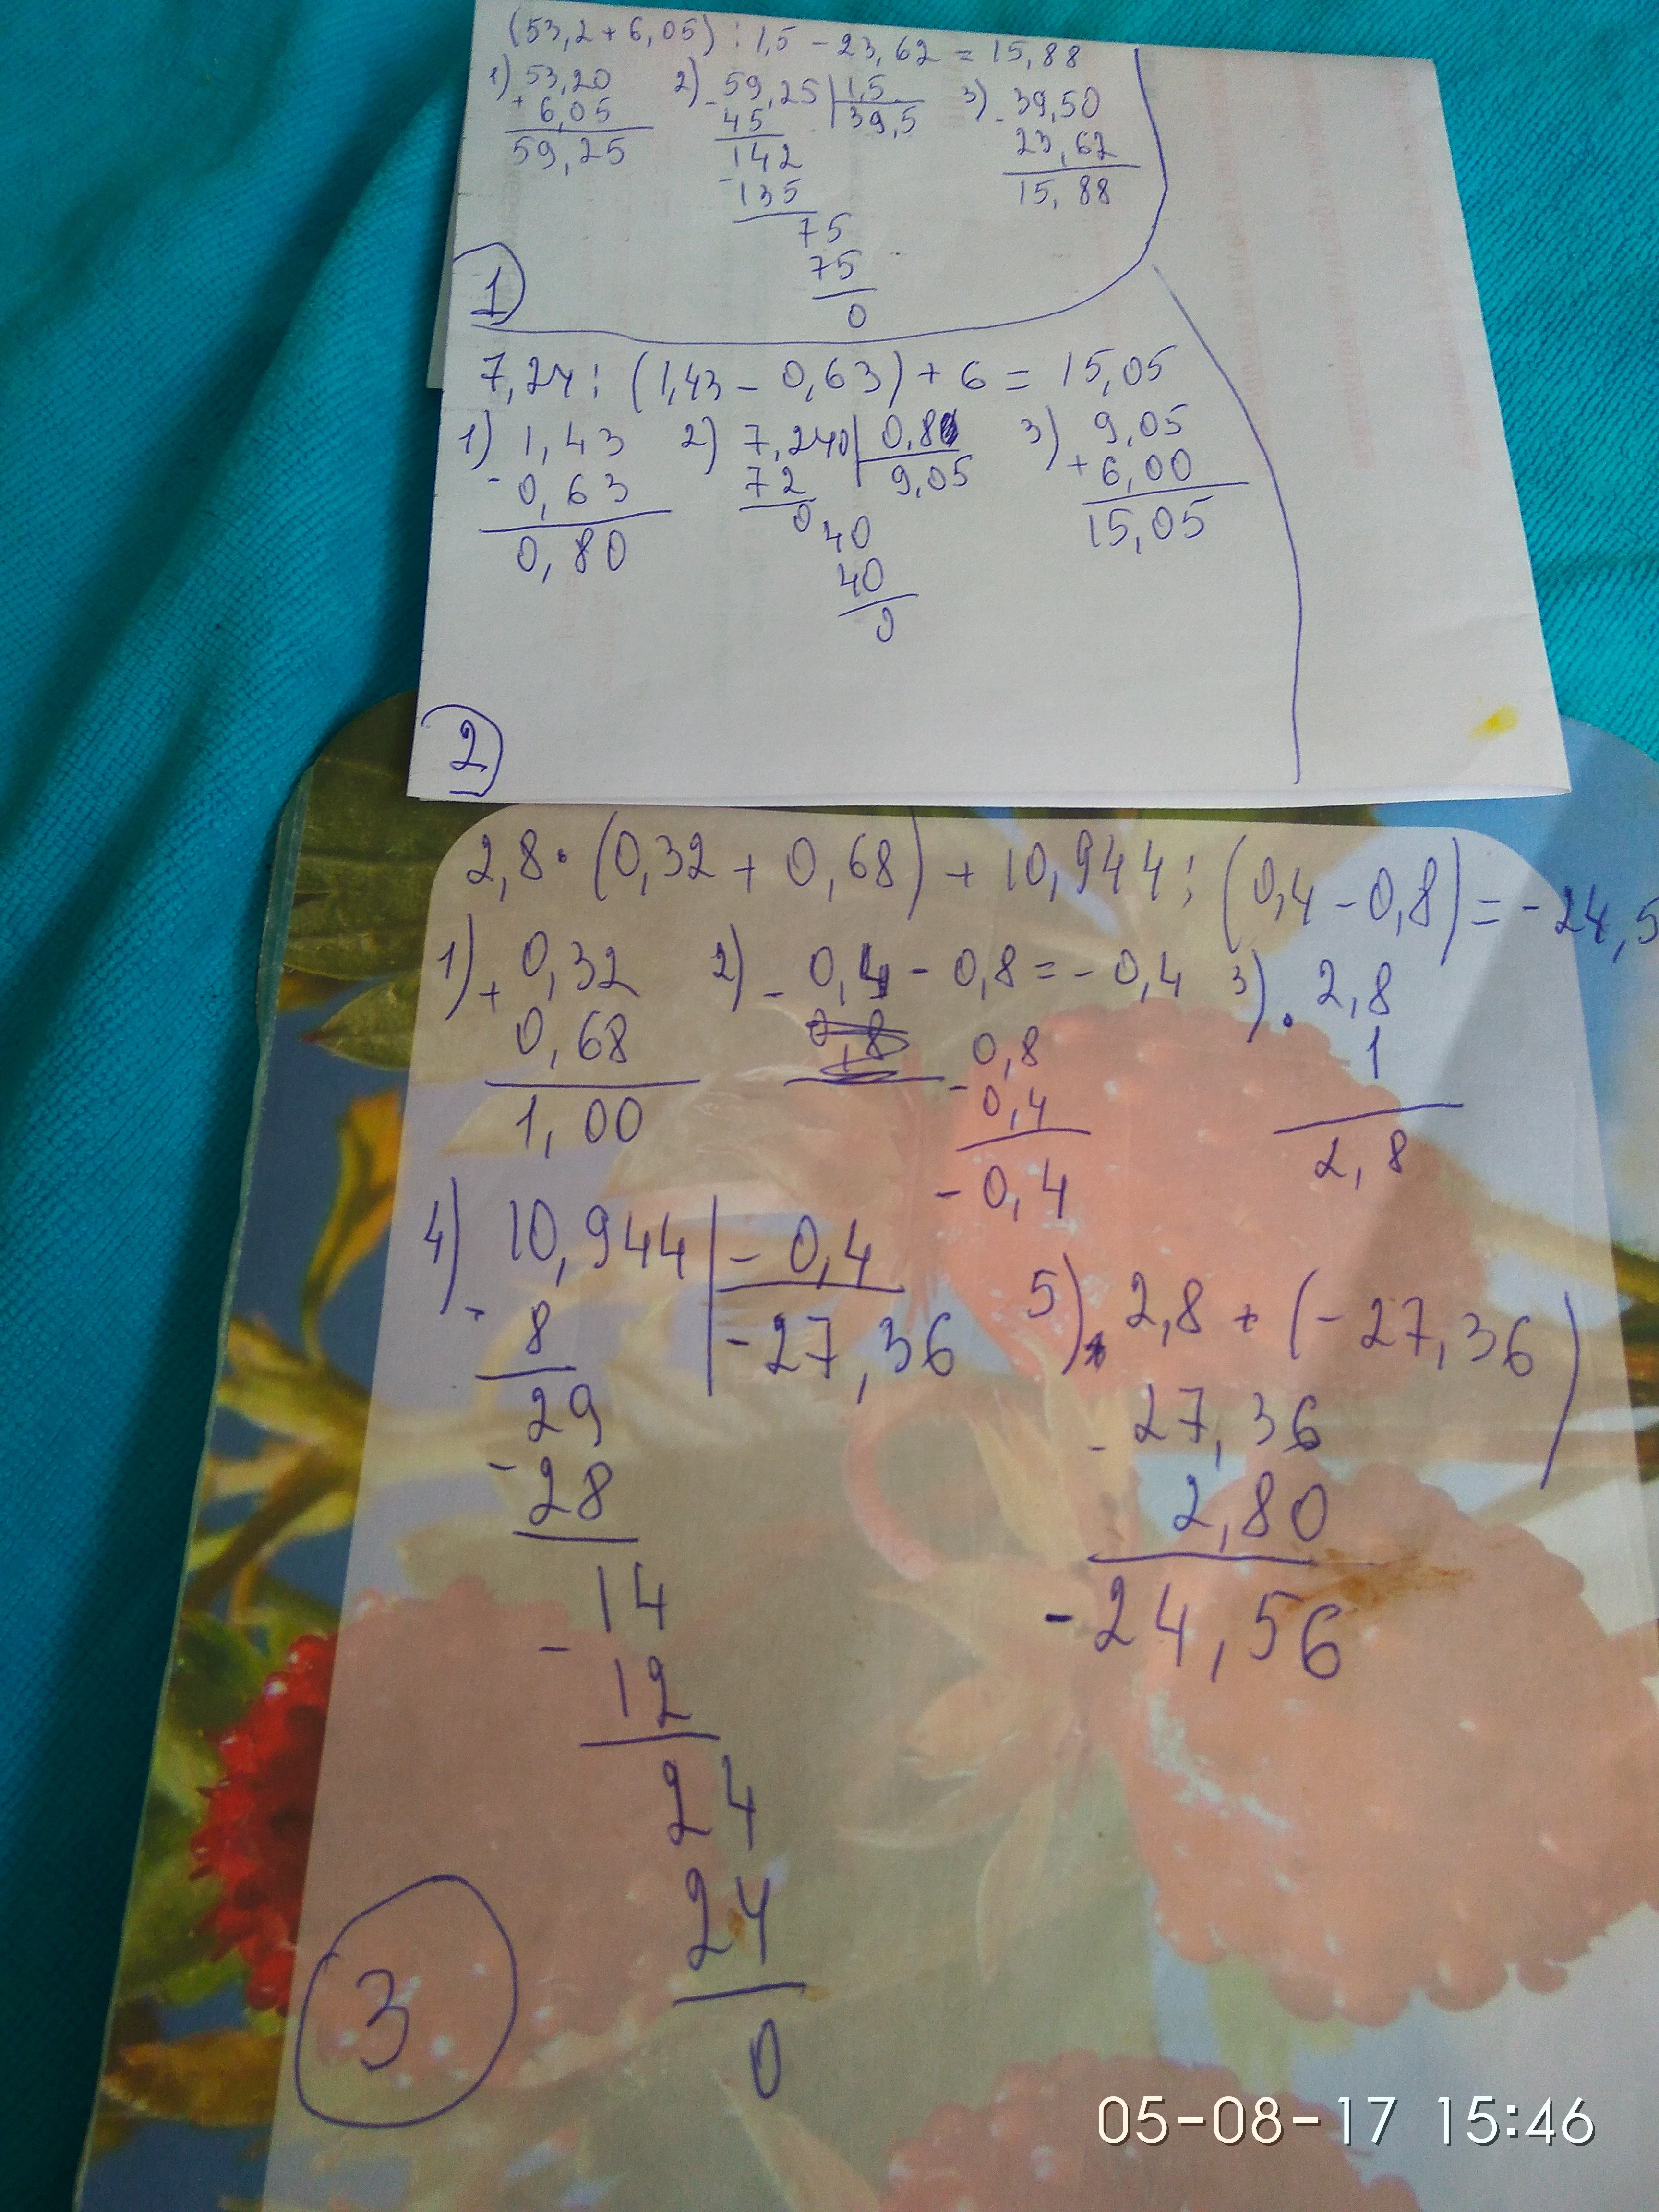 (53,2 + 6,05) : 1,5 - 23,62 = 15,88
1) 53,20 2) 59,25 | 1,5 3) 39,50
+ 6,05 - 45 39,5 - 23,62
59,25 142 15,88
- 135
75
75
0
1
7,24 : (1,43 - 0,63) + 6 = 15,05
1) 1,43 2) 7,240 | 0,8 3) 9,05
- 0,63 72 9,05 + 6,00
0,80 0 40 15,05
40
0
2
2,8 · (0,32 + 0,68) + 10,944 : (0,4 - 0,8) = - 24,5
1) + 0,32 2) - 0,4 - 0,8 = - 0,4 3) · 2,8
0,68 0,8 - 0,8 1
1,00 - 0,4 2,8
- 0,4
4) 10,944 | - 0,4 5) 2,8 + (- 27,36)
- 8 - 27,36 - 27,36
29 2,80
- 28 - 24,56
14
- 12
24
24
0
3
05-08-17 15:46